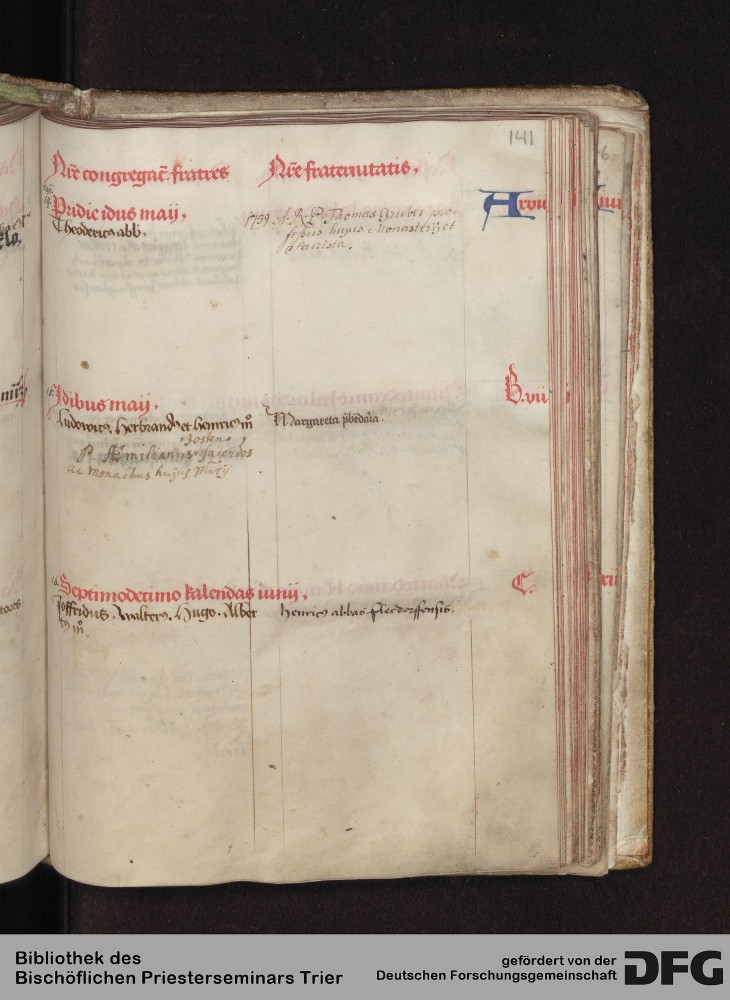 141
Nr̄e congregac̄. fratres
Nr̄e fraternitatis,
14.
Pridie idus maij,
Theoderic9 abb.
1739 A. R. P. Thomas Gruber pro-
fessus hujus Monasterij et
Jurista.
A
xvii
15.
Idibus maij.
Ludowic9. Herbrand9 et Henric9 m̊
Josten
P. Æmilianus Sacerdos
ac monachus hujus Mãrij
Margareta p̄bēdar̄ia.
B. vii
16.
Septimodecimo kalendas iunij,
Joffridus. Walter9. Hugo. Alber
t9 m̊.
Henric9 abbas flecdorffensis.
C.
Bibliothek des
Bischöflichen Priesterseminars Trier
gefördert von der
Deutschen Forschungsgemeinschaft
DFG